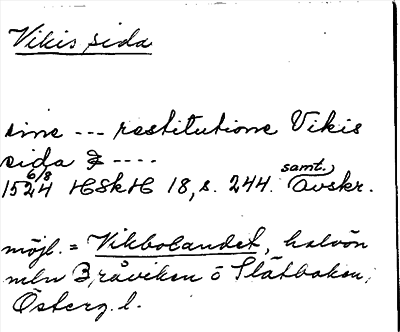 Vikis sida
sine --- restitutione Vikis
sida ----
1524 6/8 HSkH 18, s. 244. samt. Avskr.
möjl. = Vikbolandet, halvön
mln Bråviken o Slätbaken,
Österg. l.